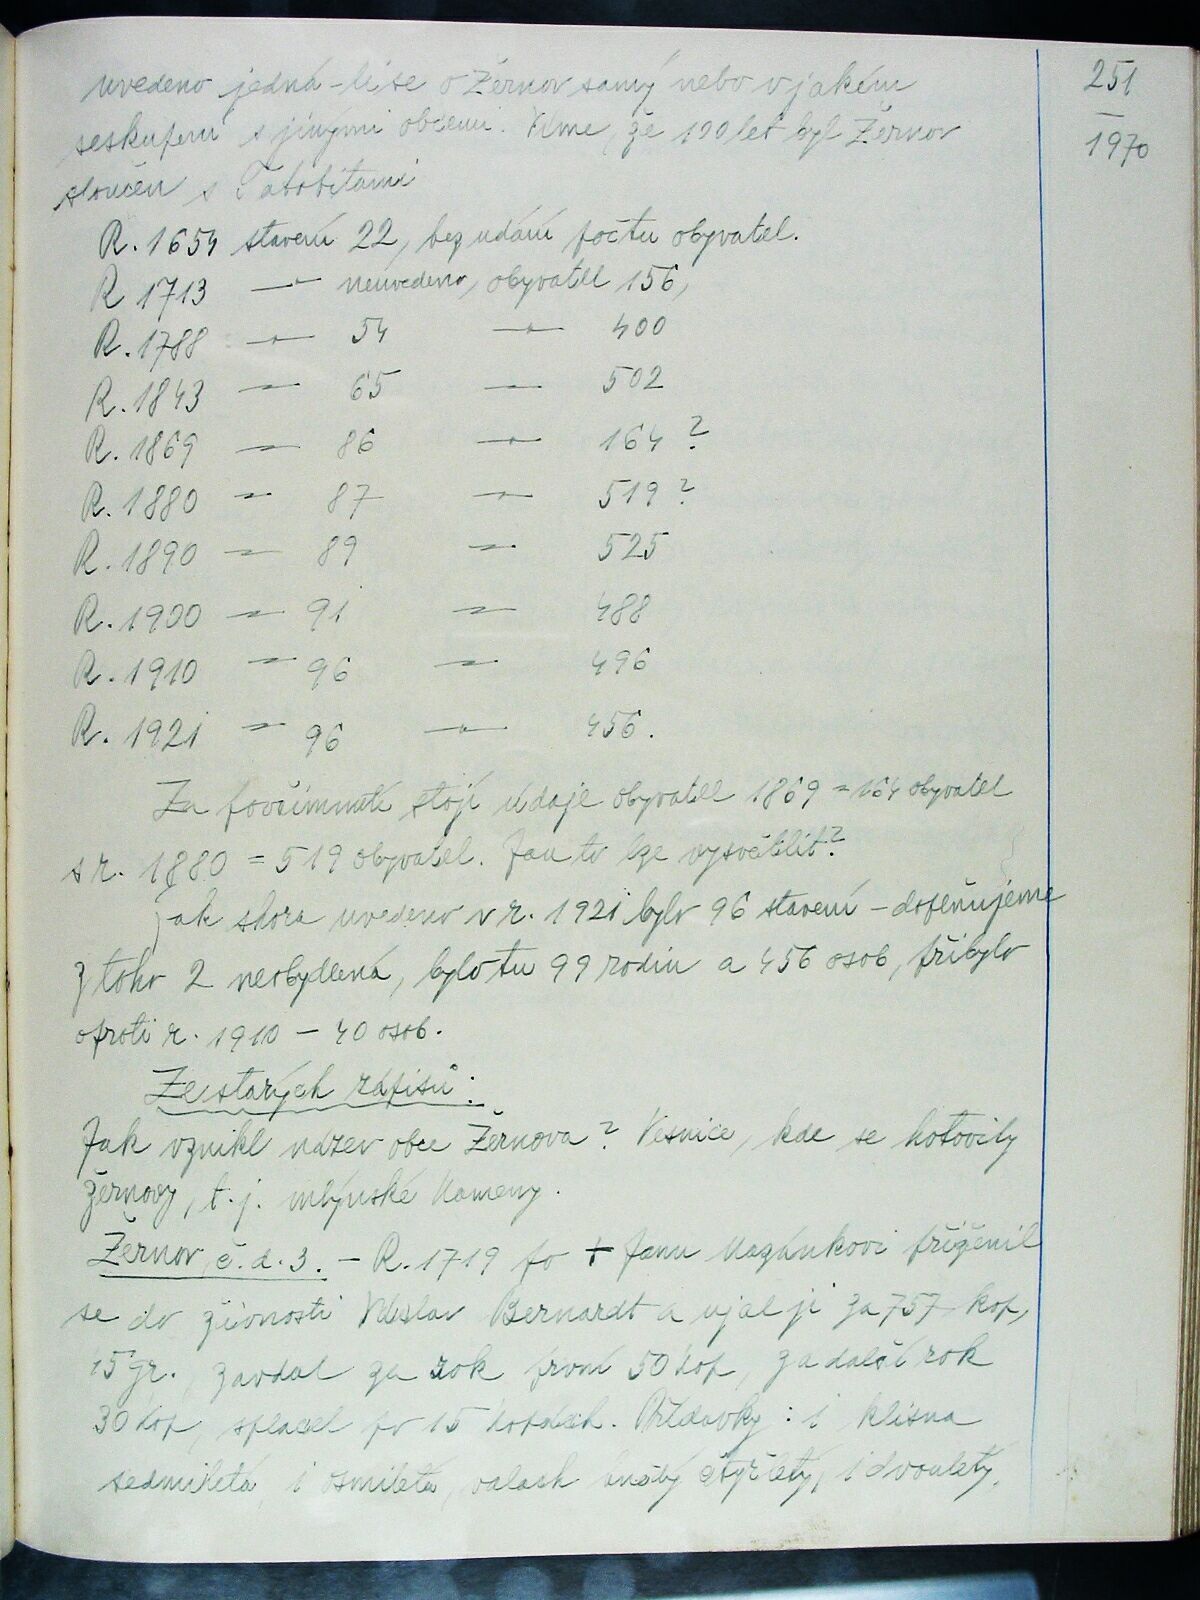 251
1970
uvedeno jedná-li se o Žernov samý nebo v jakém
seskupení s jinými obcemi. Víme, že 190 let byl Žernov
sloučen s Tatobitami
R. 1654 stavení 22, bez udání počtu obyvatel.
R 1713 —"— neuvedeno, obyvatel 156,
R. 1788 —"— 54 —"— 400
R. 1843 —"— 65 —"— 502
R. 1869 —"— 86 —"— 164 ?
R. 1880 —"— 87 —"— 519 ?
R. 1890 —"— 89 —"— 525
R. 1900 —"— 91 —"— 488
R. 1910 —"— 96 —"— 496
R. 1921 —"— 96 —"— 456.
Za povšimnutí stojí údaje obyvatel 1869 = 164 obyvatel
s r. 1880 = 519 obyvatel. Jak to lze vysvětlit?
Jak shora uvedeno v r. 1921 bylo 96 stavení – doplňujeme
z toho 2 neobydlená, bylo tu 99 rodin a 456 osob, přibylo
oproti r. 1910 — 40 osob.
Ze starých zápisů:
Jak vznikl název obce Žernova? Vesnice, kde se hotovily
žernovy, t.j. mlýnské kameny.
Žernov č.d. 3. – R. 1719 po + Janu přiženil
se do živnosti Václav Bernardt a ujal ji za 757 kop,
15 gr., zavdal za rok první 50 kop, za další rok
30 kop, splácel po 15 kopách. Přídavky: 1 klisna
sedmiletá, 1 osmiletá, valach hnědý čtyřletý, 1 dvouletý,